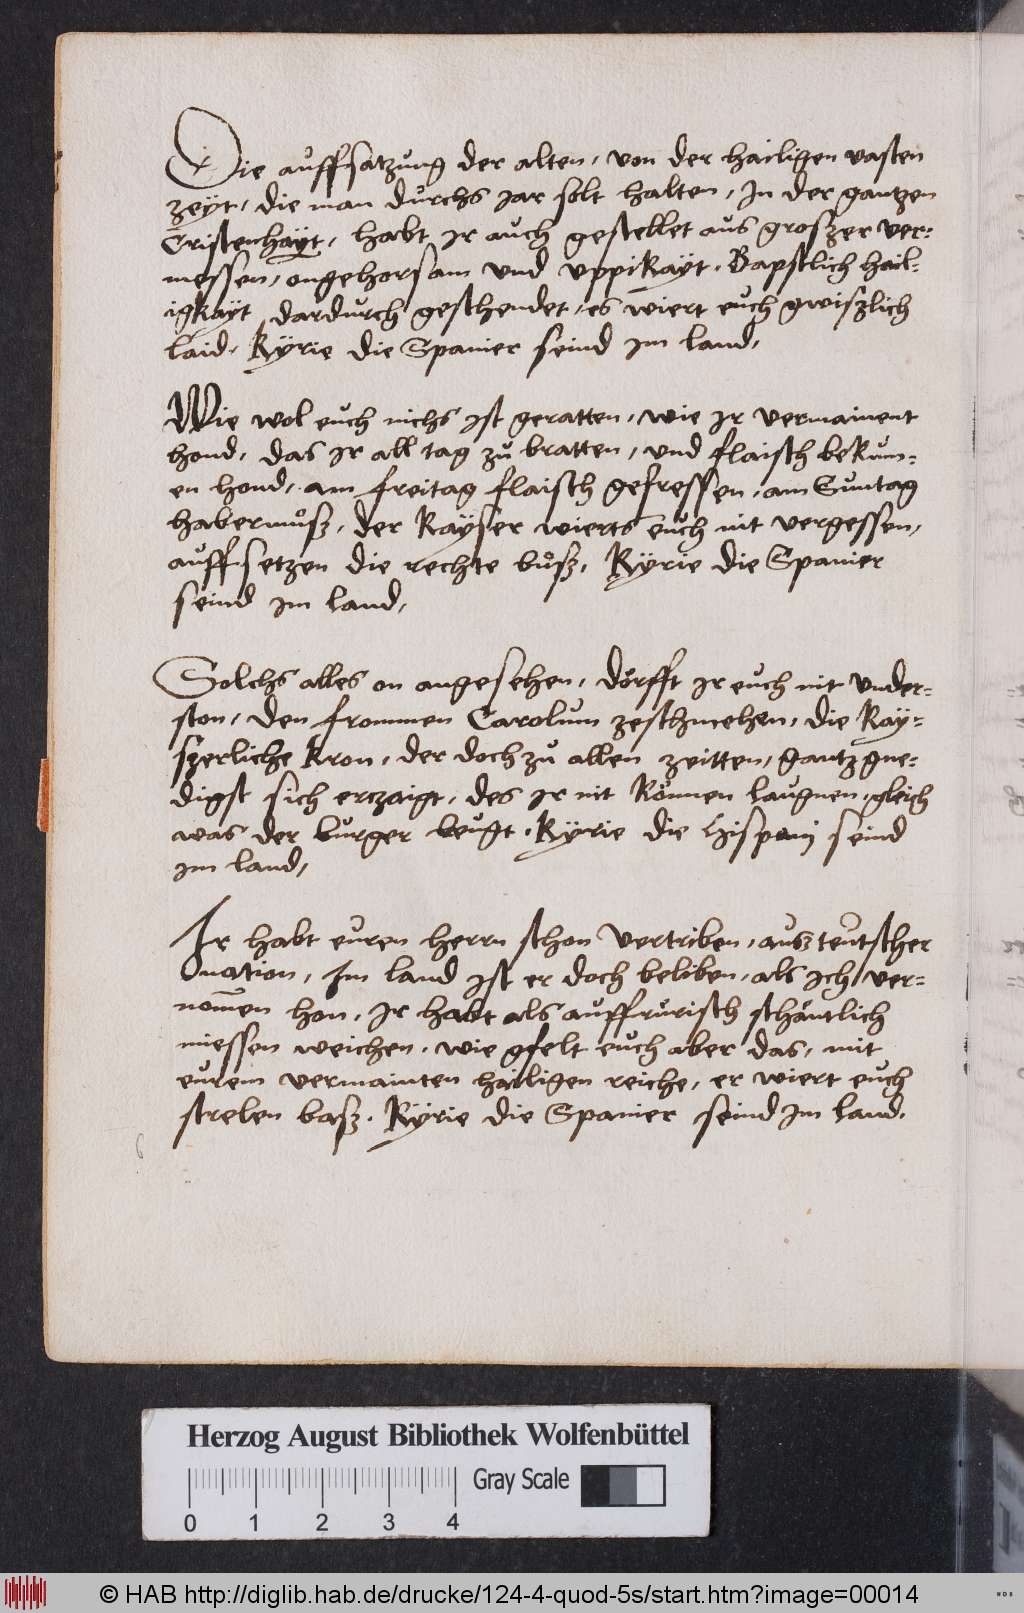 Die auffsatzung der alten, von der hailigen vasten
zeÿt, die man durchs jar solt halten, In der gantzen
Cristenhaÿt, habt Ir auch gestellet aus groszer ver-
messen, ongehorsam und uppikaÿt. Bapstlich hail-
igkaÿt dardurch geschendet, es wiert euch gwiszlich
laid, Kÿrie die Spanier seind im land,
Wie wol euch nichs ist geratten, wie Ir vermainent
hond, das Ir all tag zů bratten, und flaisch bekum-
en hond, am freitag flaisch gefressen, am Suntag
habermůsz, der Kaÿser wierts euch nit vergessen,
auffsetzen die rechte bůsz, Kÿrie die Spanier
seind im land,
Solchs alles on angesehen, dörfft Ir euch nit under-
ston, den frommen Carolum zeschmehen, die Kaÿ-
szerliche kron, der doch zů allen zeitten, gantz gne-
digst sich erczaigt, des Ir nit können laugnen, gleich
was der burger beugt, Kÿrie die Hispani seind
im land,
Ir habt euren herrn schon vertriben, ausz teutscher
nation, Im land ist er doch beliben, als Ich ver-
nom̄en hon, Ir habt als auffrurisch schäntlich
miessen weichen, wie gfelt euch aber das, mit
eurem vermainten hailigen reiche, er wiert euch
strelen basz. Kÿrie die Spanier seind im land.
Herzog August Bibliothek Wolfenbüttel
Gray Scale
0 1 2 3 4
© HAB http://diglib.hab.de/drucke/124-4-quod-5s/start.htm?image=00014